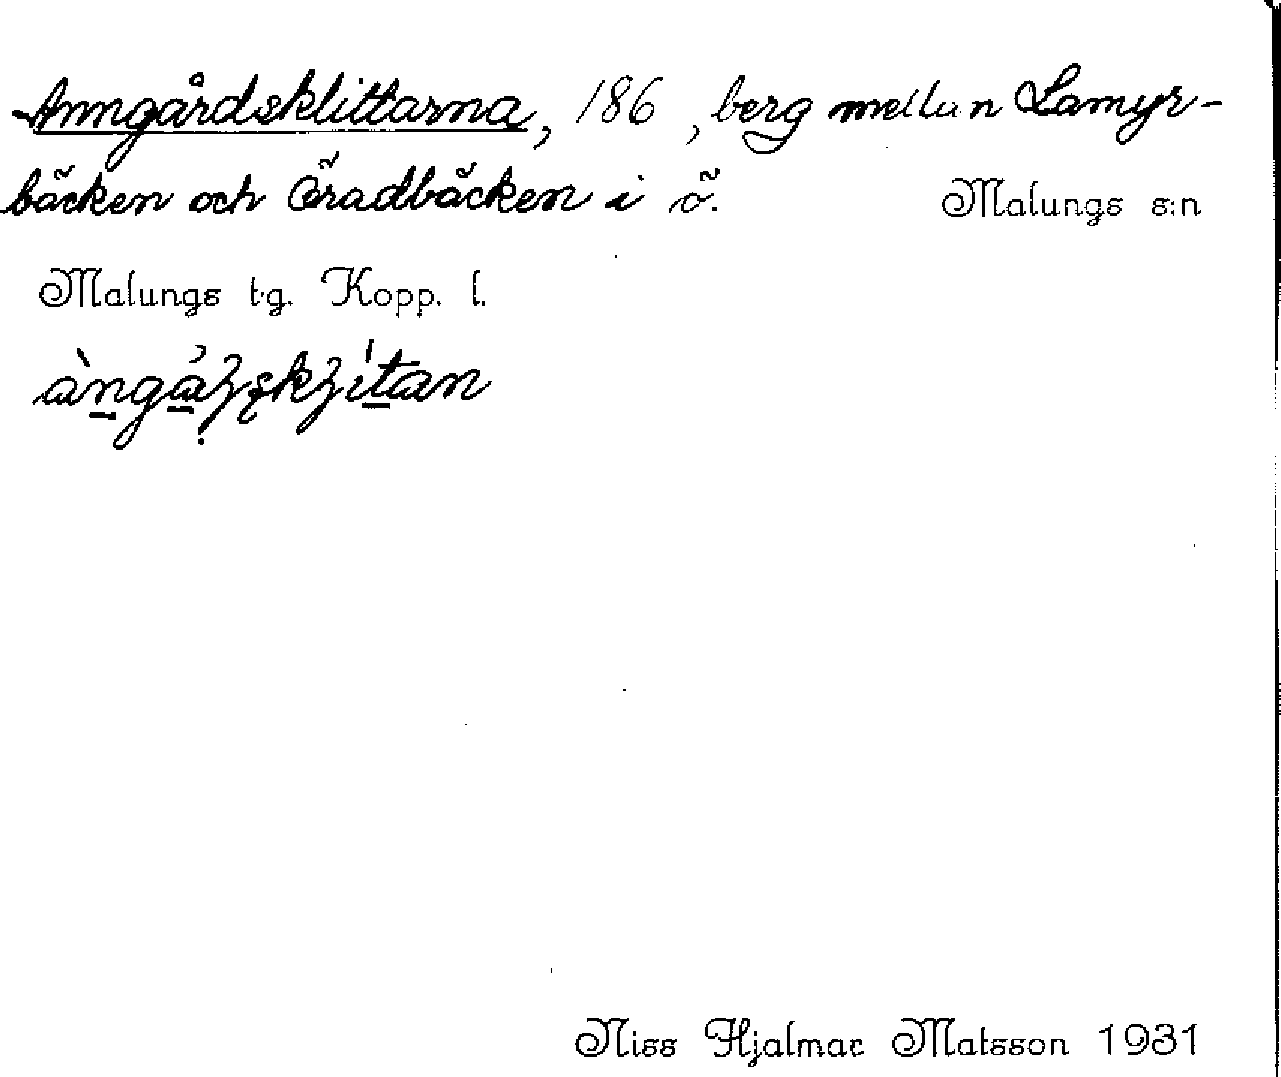 Anngårdsklittarna, 186, berg mellan Lamyr-
bäcken och Öradbäcken i ö. Malungs s:n
Malungs t.g. Kopp. l.
Niss Hjalmar Matsson 1931